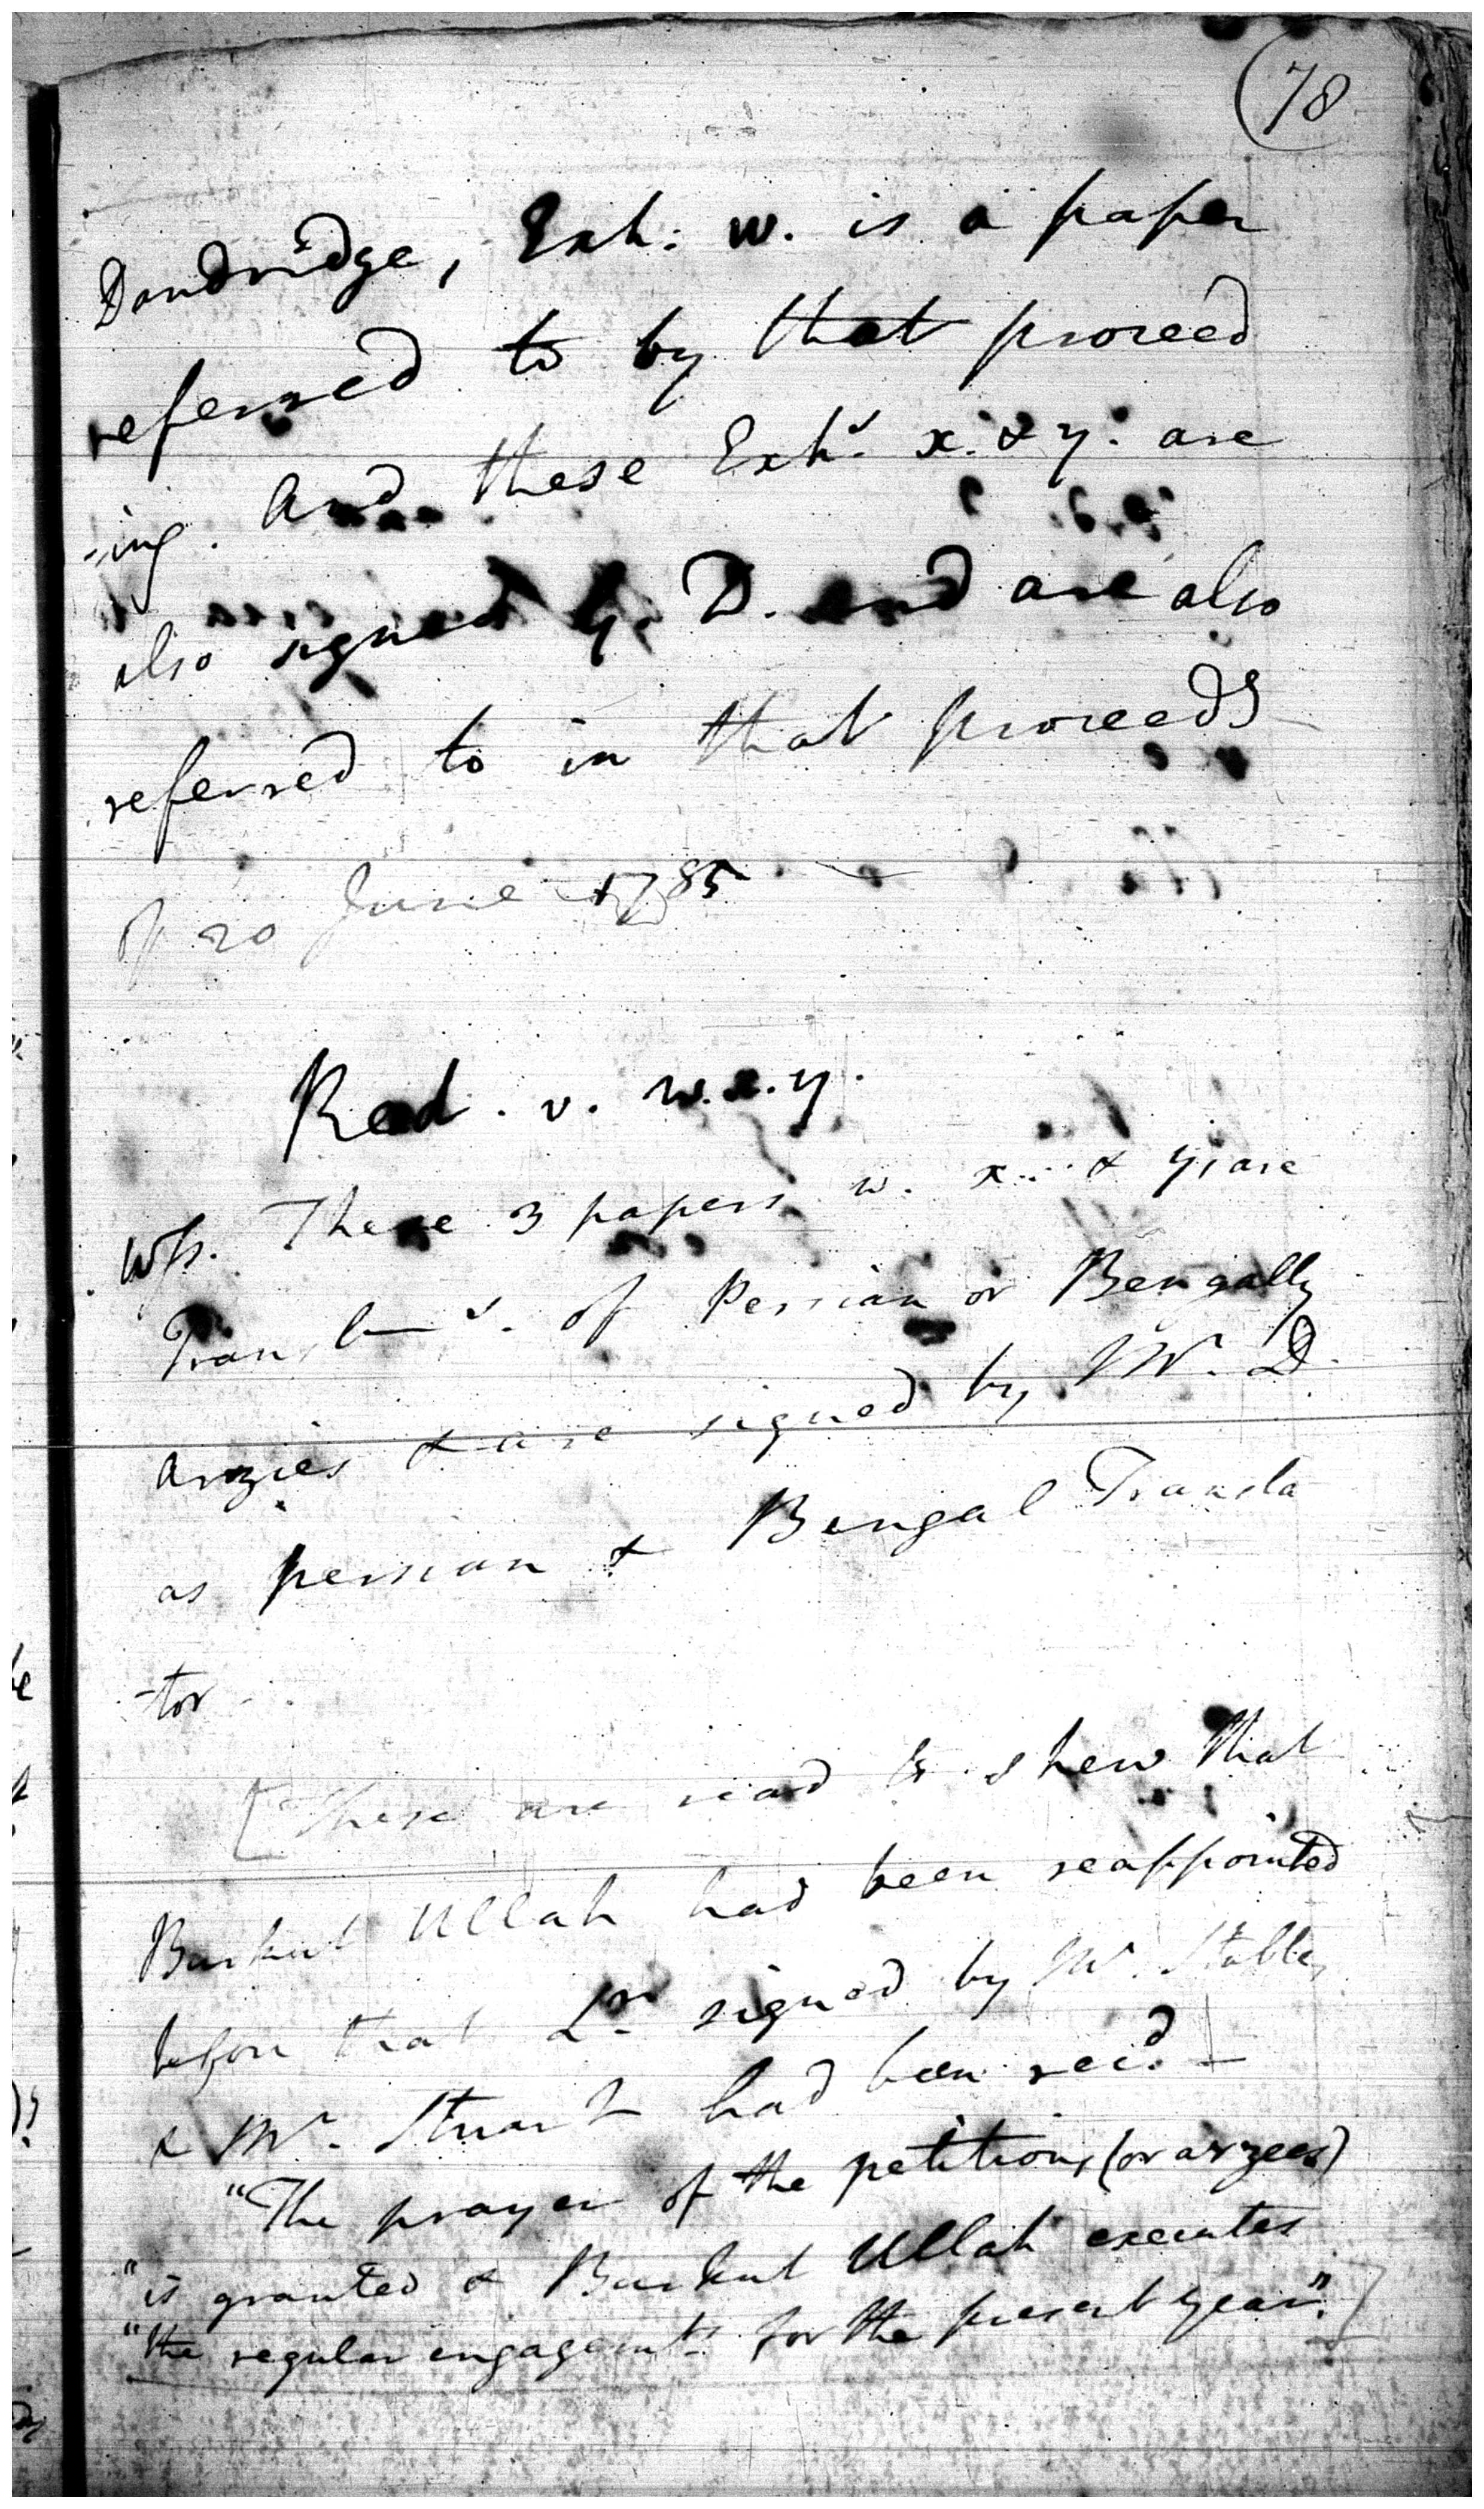 (78
Dandridge, Exh: w. is a paper
referred to by that proceed
-ing. And these Exhs x. & y. are
also signed by D. and are also
referred to in that proceedg
of 20 June 1785
Read. v. w.x.y.
Wss. These 3 papers w. x. & y. are
Translns. of Persian or Bengally
arzies & are signed by Mr. D.
as persian & Bengal Transla
-tor
[These are read to shew that
Burkut Ullah had been reappointed
before that Lr signed by Mr. Stables
& Mr. Stuart had been recd. —
"The prayer of the petitions (or arzees)
"is granted & Burkut Ullah executes
"the regular engagemts for the present year".]